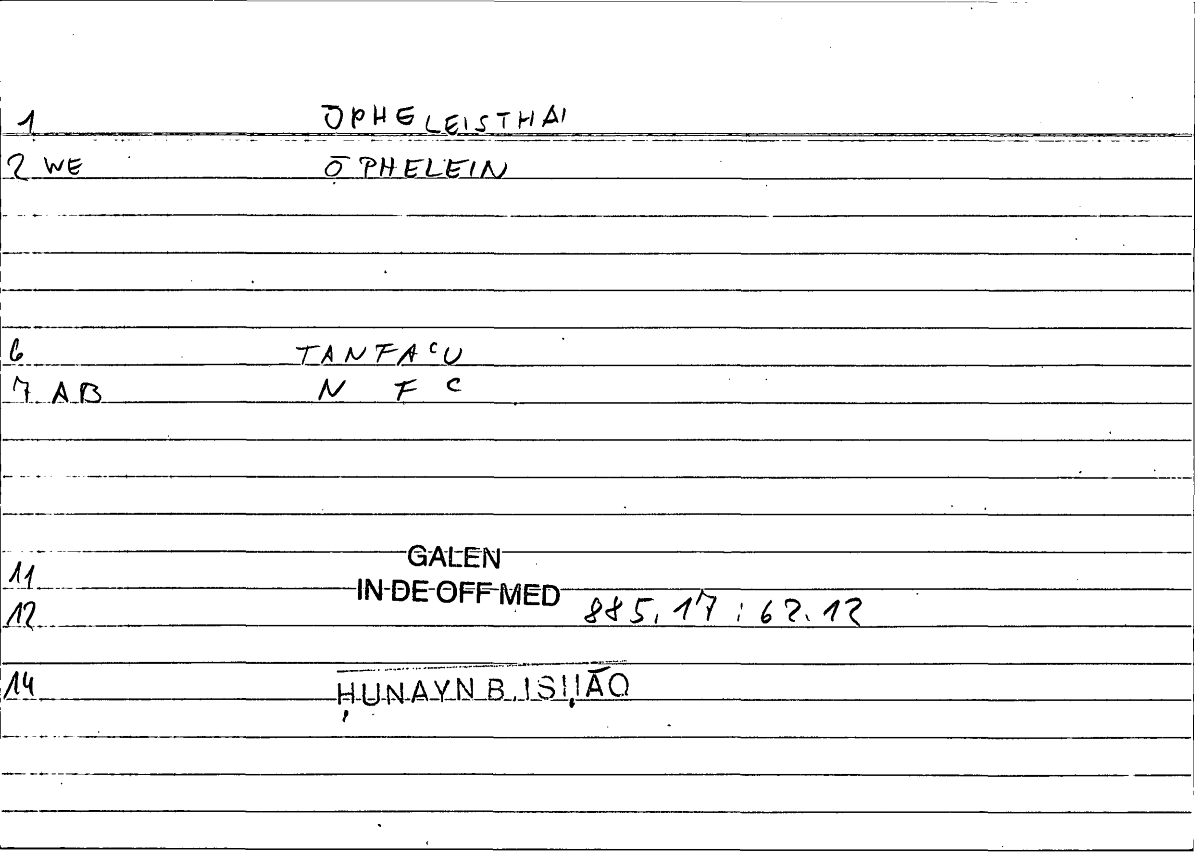 1 ŌPHELEISTHAI
2 WE ŌPHELEIN
6 TANFAᶜU
7 AB N F ᶜ
11 GALEN
12 IN DE OFF MED 885.17 : 62.12
14 ḤUNAYN B. ISḤĀQ